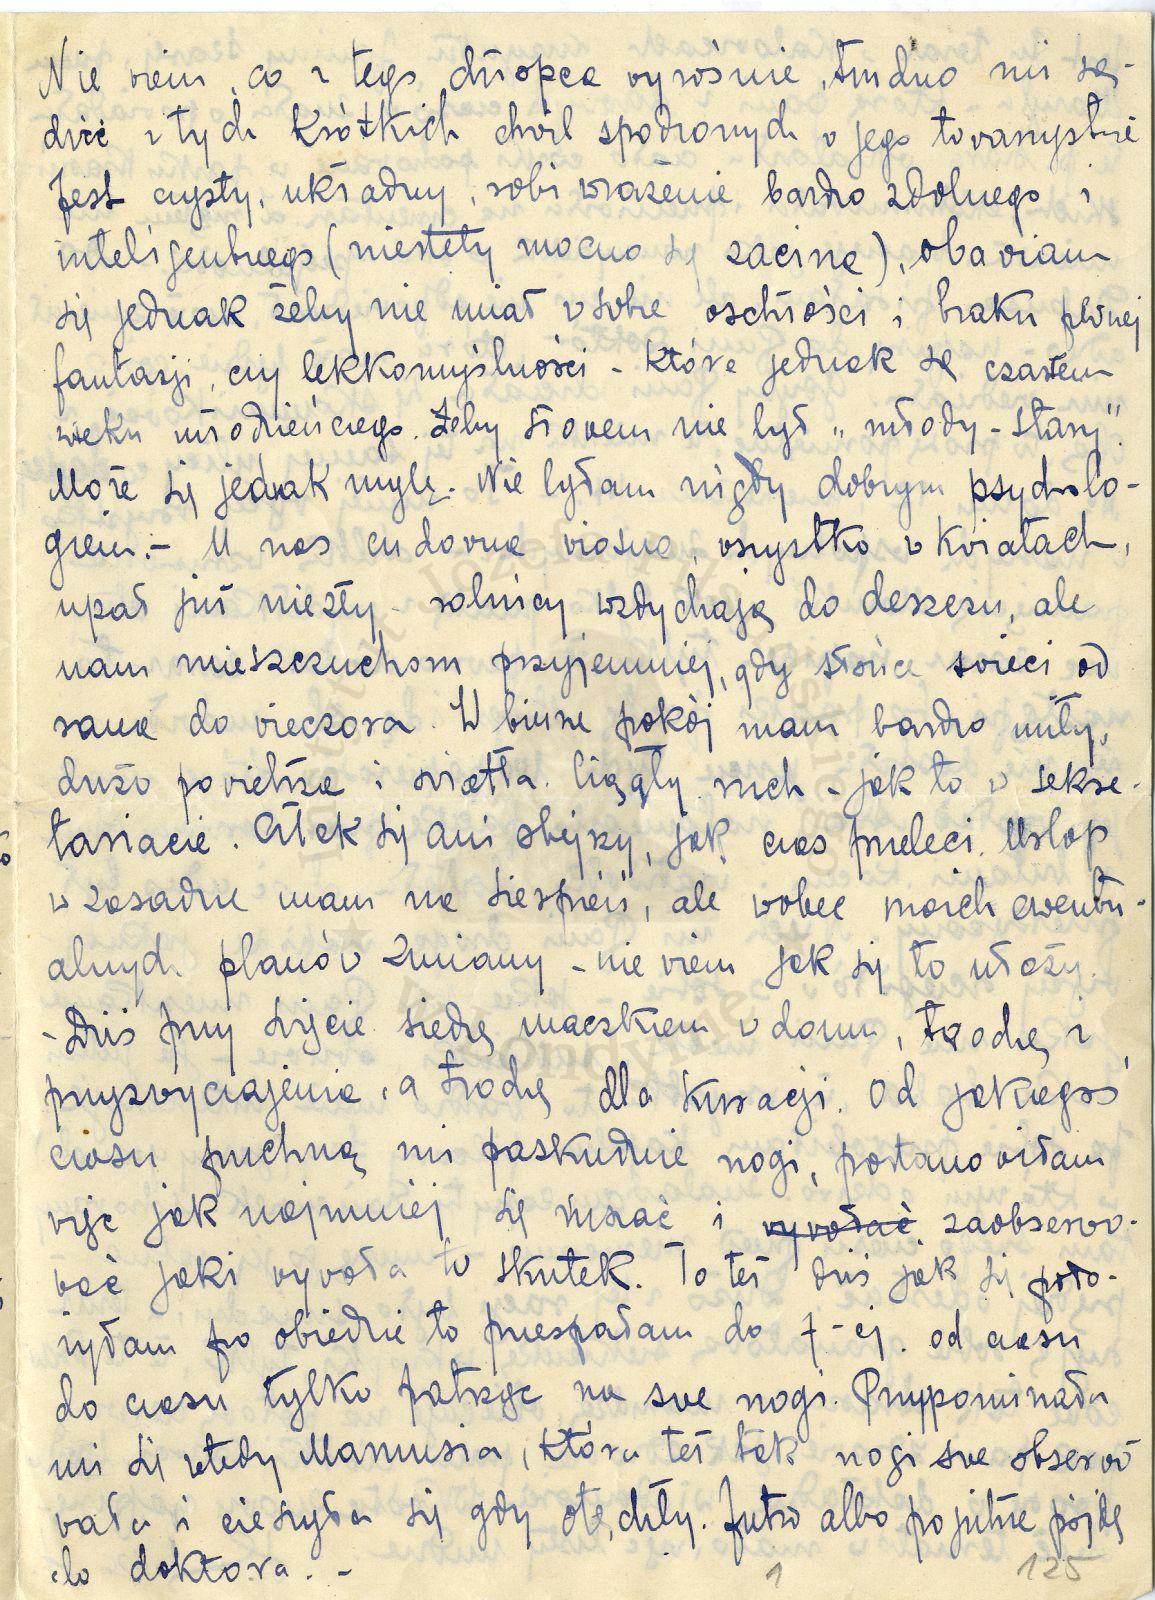 Nie wiem, co z tego chłopca wyrośnie, trudno mi są-
dzić z tych krótkich chwil spędzonych w jego towarzystwie
Jest czysty, układny, robi wrażenie bardzo zdolnego i
inteligentnego (niestety mocno się zacina), obawiam
się jednak żeby nie miał w sobie oschłości i braku pewnej
fantazji, czy lekkomyślności - która jednak są czarem
wieku młodzieńczego. Żeby słowem nie był „młody-stary".
Może się jednak mylę. Nie byłam nigdy dobrym psycholo-
giem. - U nas cudowna wiosna, wszystko w kwiatach,
upał już niezły - rolnicy wzdychają do deszczu, ale
nam mieszczuchom przyjemniej, gdy słońce świeci od
rana do wieczora. W biurze pokój mam bardzo miły,
dużo powietrza i światła. Ciągły ruch - jak to w sekre-
tariacie. Człek się ani obejrzy, jak czas przeleci. Urlop
w zasadzie mam na sierpień, ale wobec moich ewentu-
alnych planów zmiany - nie wiem jak się to ułoży.
- Dziś przy święcie siedzę maczkiem w domu, trochę z
przyzwyczajenia, a trochę dla kuracji. Od jakiegoś
czasu puchną mi paskudnie nogi, postanowiłam
więc jak najmniej się ruszać i wywołać zaobserwo-
wać jaki wywoła to skutek. To też dziś jak się poło-
żyłam po obiedzie to przespałam do 7-ej. od czasu
do czasu tylko patrząc na swe nogi. Przypominała
mi się wtedy Mamusia, która też tak nogi swe obserwo
wała i cieszyła się gdy otęchły. Jutro albo pojutrze pójdę
do doktora. -
1 125